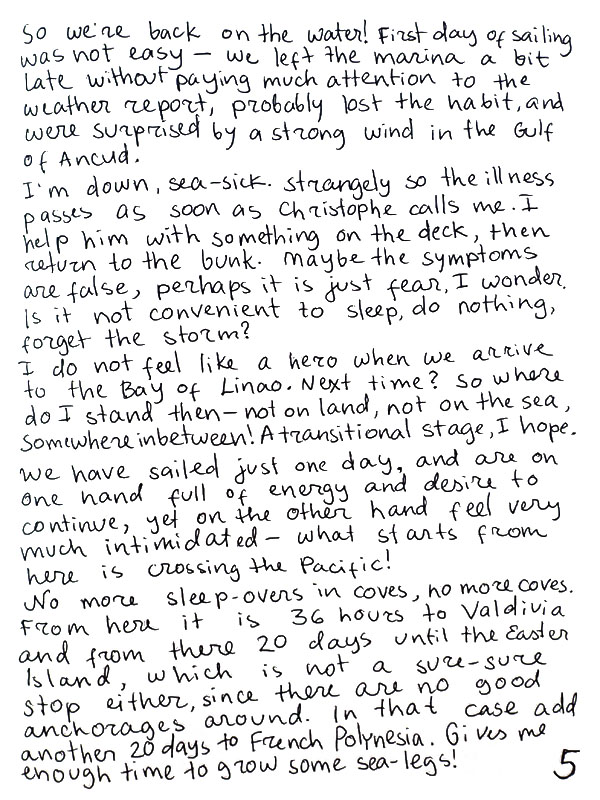 So we're back on the water! First day of sailing
was not easy – we left the marina a bit
late without paying much attention to the
weather report, probably lost the habit, and
were surprised by a strong wind in the Gulf
of Ancud.
I'm down, sea-sick. Strangely so the illness
passes as soon as Christophe calls me. I
help him with something on the deck, then
return to the bunk. Maybe the symptoms
are false, perhaps it is just fear, I wonder.
Is it not convenient to sleep, do nothing,
forget the storm?
I do not feel like a hero when we arrive
to the Bay of Linao. Next time? So where
do I stand then – not on land, not on the sea,
somewhere inbetween! A transitional stage, I hope.
We have sailed just one day, and are on
one hand full of energy and desire to
continue, yet on the other hand feel very
much intimidated – what starts from
here is crossing the Pacific!
No more sleep-overs in coves, no more coves.
From here it is 36 hours to Valdivia
and from there 20 days until the Easter
Island, which is not a sure-sure
stop either, since there are no good
anchorages around. In that case add
another 20 days to French Polynesia. Gives me
enough time to grow some sea-legs!
5